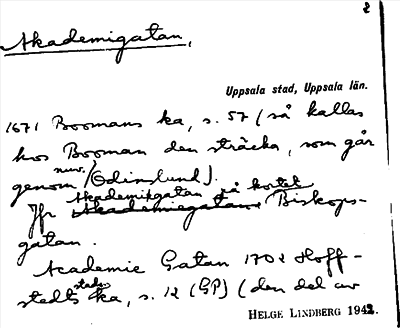 2
Akademigatan,
Uppsala stad, Uppsala län.
1671 Boomans ka, s. 57 (så kallas
hos Booman den sträcka, som går
genom nuv. Odinslund).
Akademigatan på kortet
Jfr Akademiegatan. Biskops-
gatan.
Academie Gatan 1702 Hoff-
stedts stads ka, s. 12 (GP) (den del av
HELGE LINDBERG 1942.